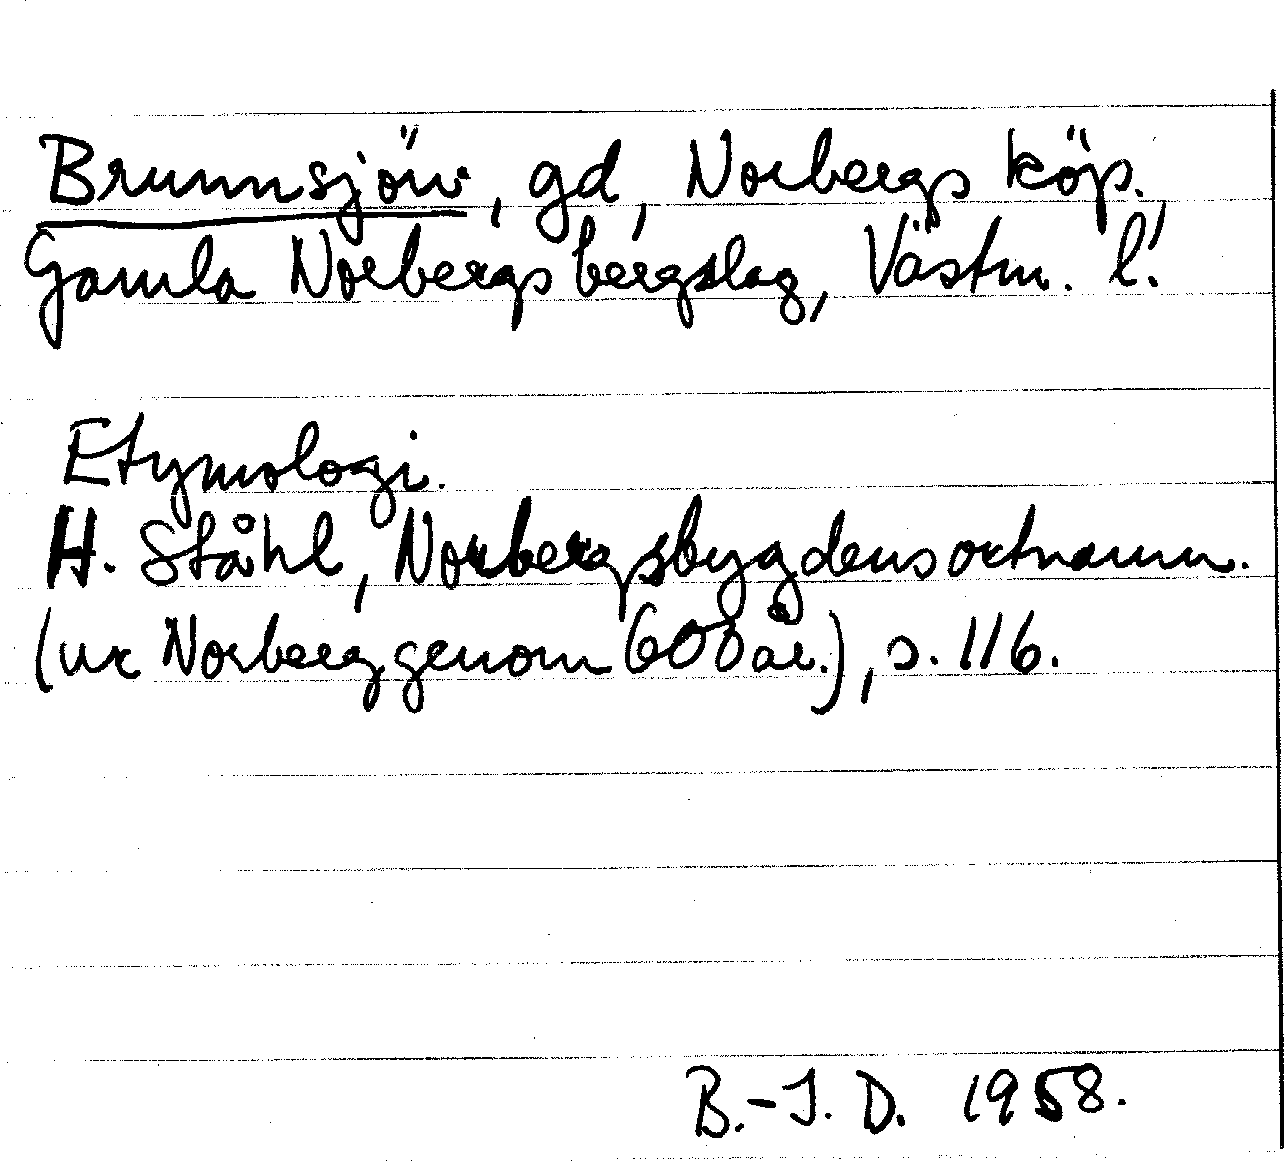 Brunnsjön, gd, Norbergs köp.,
Gamla Norbergs bergslag, Västm. l.
Etymologi.
H. Ståhl, Norbergsbygdens ortnamn.
(ur Norberg genom 600 år.), s. 116.
B.-I. D. 1958.